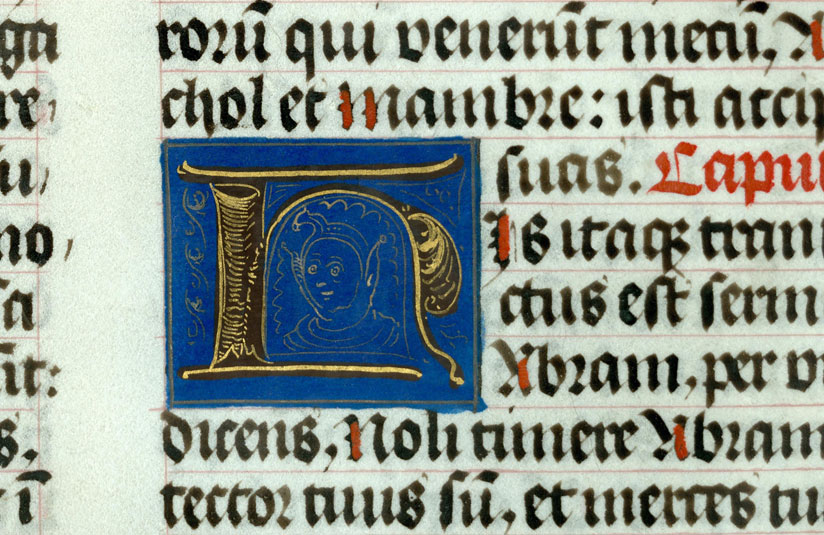 re,
no,
rorū qui venerūt mecū, A
chol et Mambre: isti accip
suas. Capu
HIs itaqꝫ tran
ctus est serm
Abram, per vi
dicens, Noli timere Abram
tector tuus sū, et merces tu